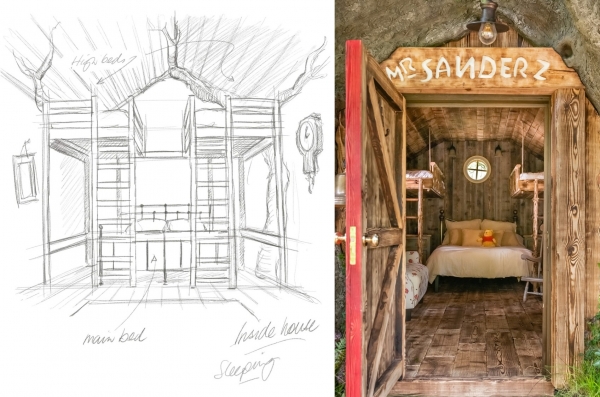 High beds
main bed
Inside house
Sleeping
MR SANDERZ